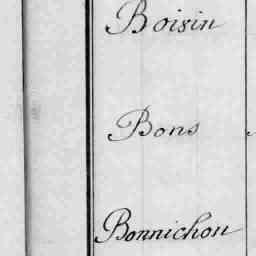 Boisin
Bons
Bonnichon